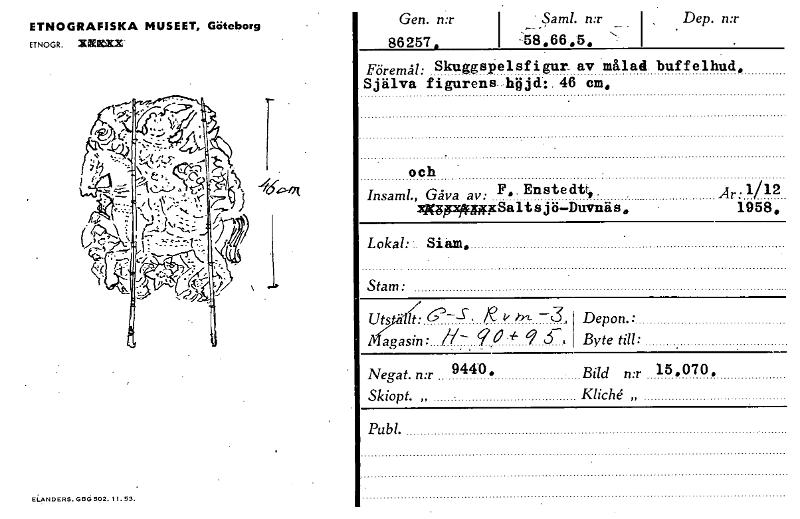 ETNOGRAFISKA MUSEET, Göteborg
ETNOGR.
46 cm
ELANDERS, GBG 502. 11. 53.
Gen. n:r Saml. n:r Dep. n:r
86257. 58.66.5.
Föremål: Skuggspelsfigur av målad buffelhud.
Själva figurens höjd: 46 cm.
och
Insaml., Gåva av: F. Enstedt, År: 1/12
Saltsjö-Duvnäs. 1958.
Lokal: Siam.
Stam:
Utställt: G-S. Rum-3. Depon.:
Magasin: H-90+95. Byte till:
Negat. n:r 9440. Bild n:r 15.070.
Skiopt. „ Kliché „
Publ.